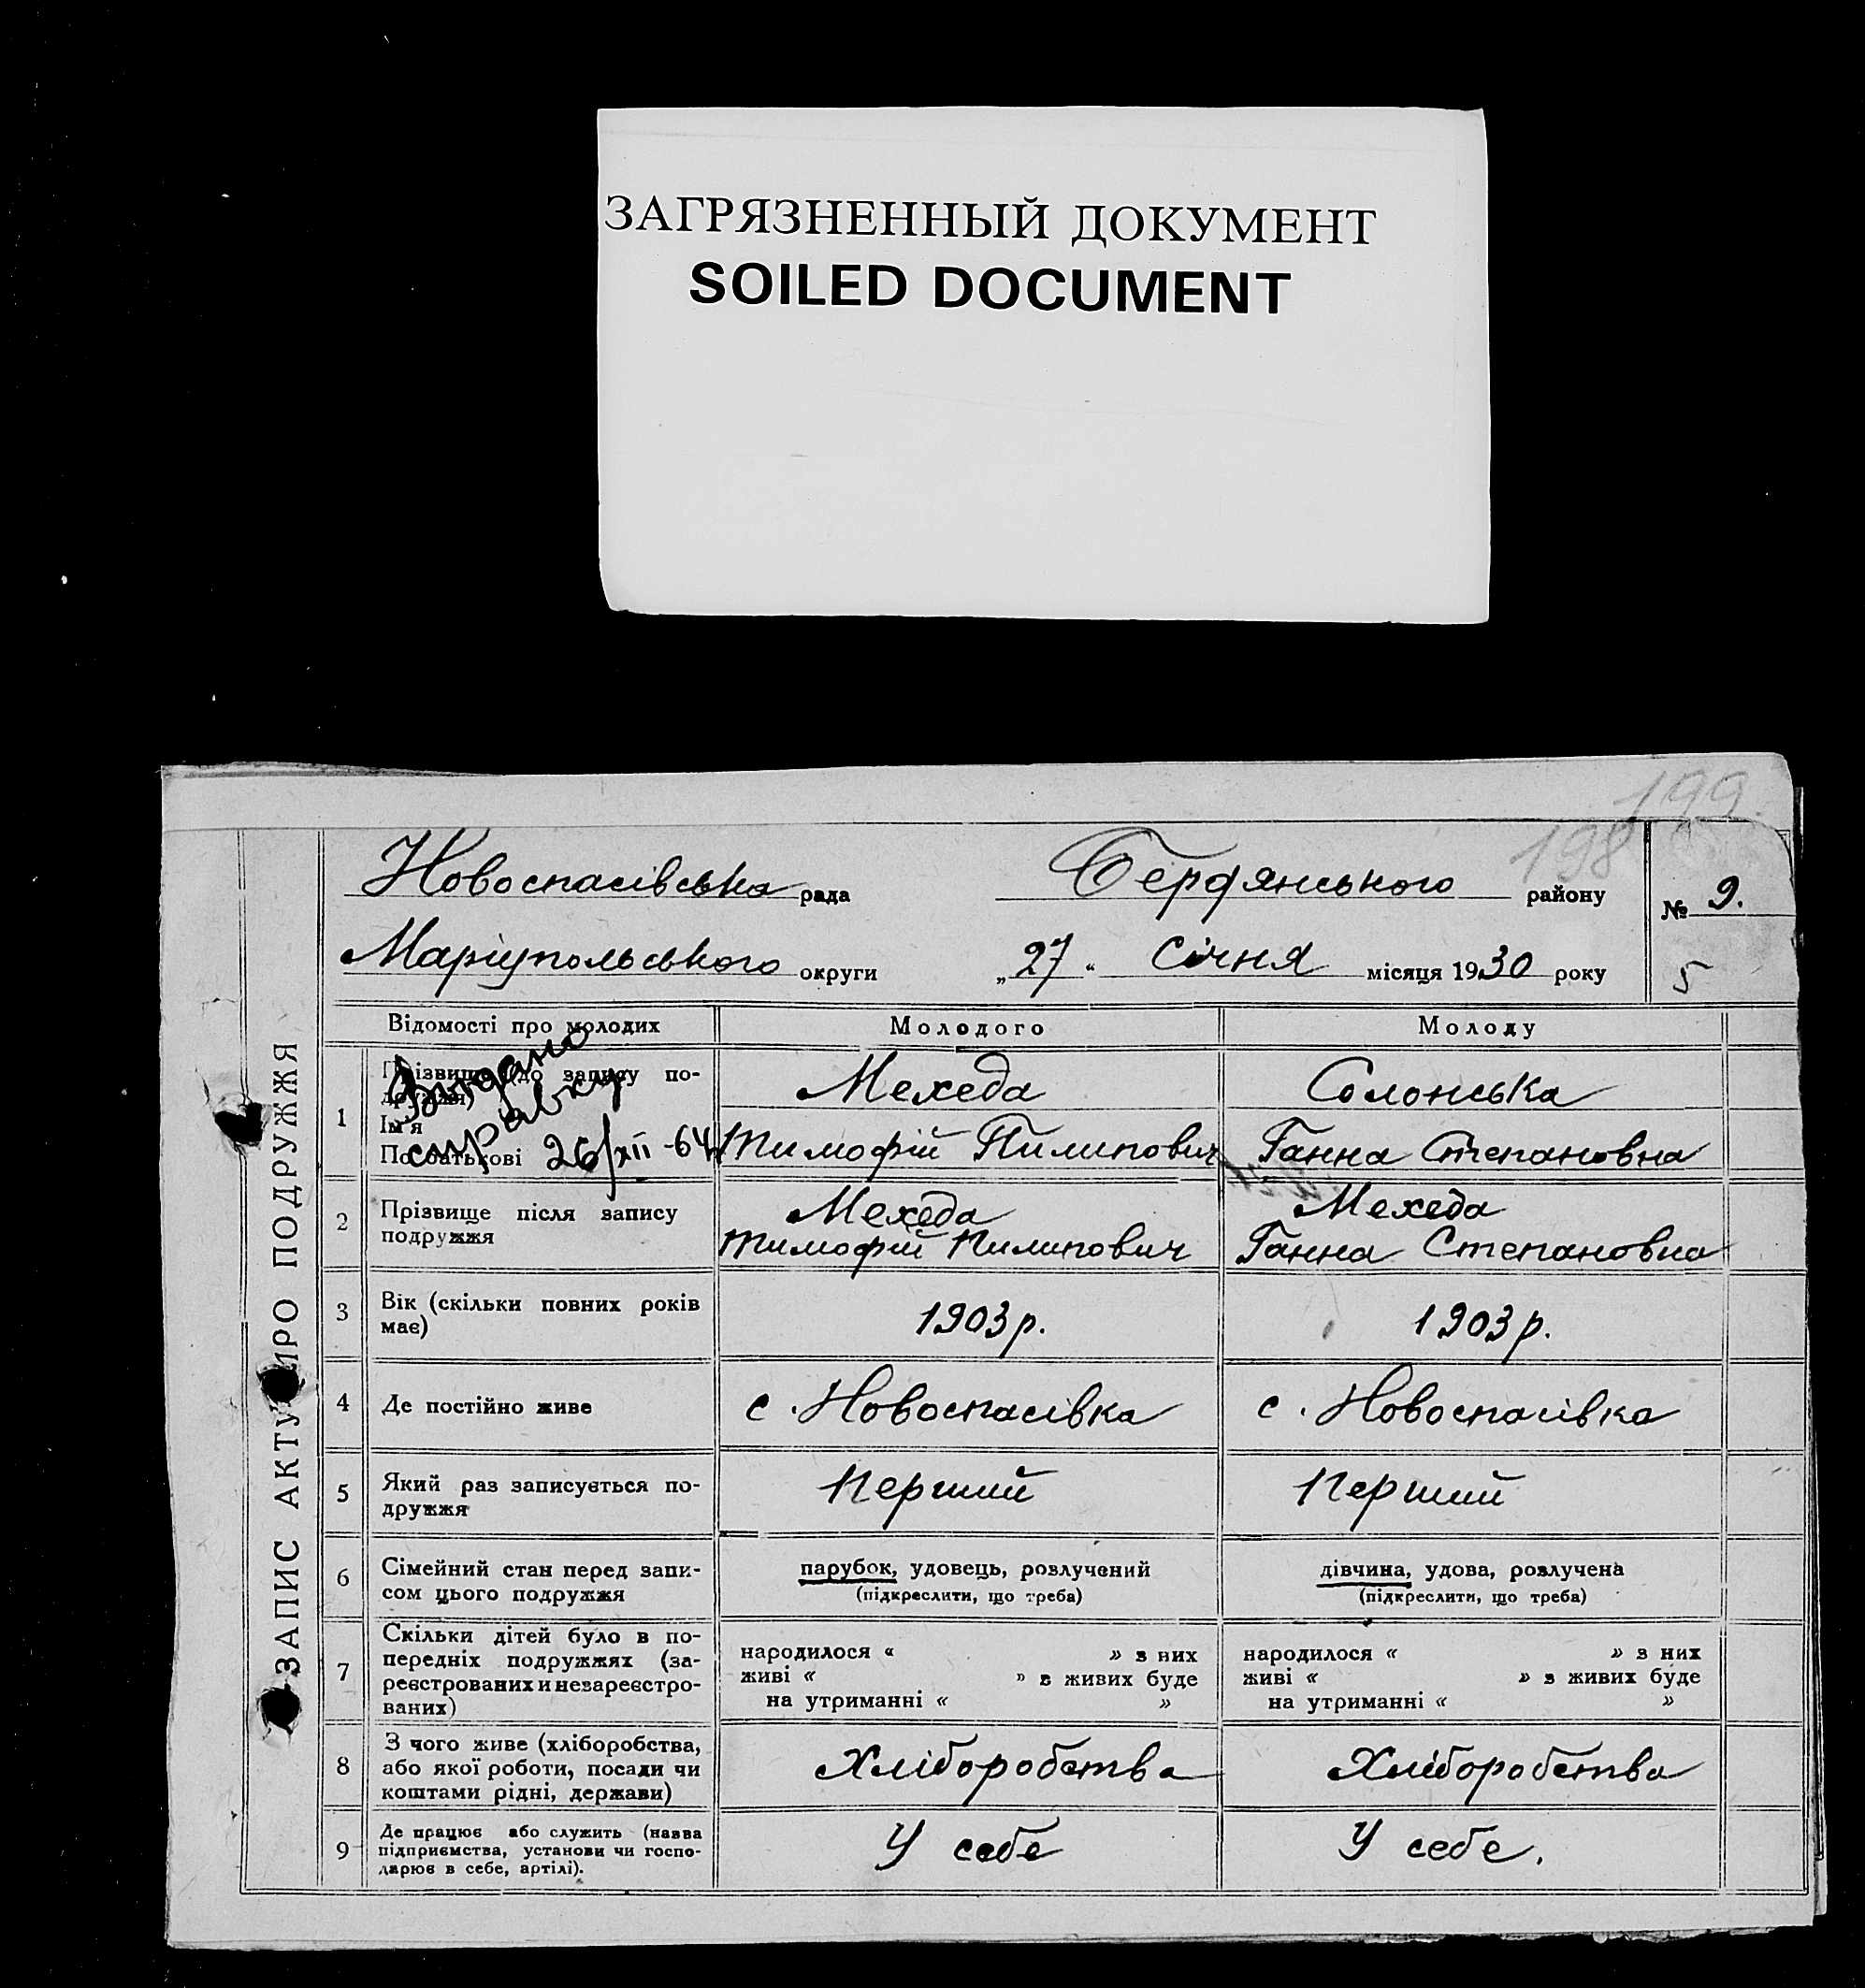 ЗАГРЯЗНЕННЫЙ ДОКУМЕНТ
SOILED DOCUMENT
199
198
Новоспасівська рада Бердянського району № 9.
Маріупольського округи „27“ Січня місяця 1930 року 5
ЗАПИС АКТУ ПРО ПОДРУЖЖЯ
Відомості про молодих Молодого Молоду
1 Прізвище (до запису по-
дружжя)
Ім'я
По батькові
Видано
справку
26/XII-64
Мехеда
Тимофій Пилипович
Солонська
Ганна Степановна
2 Прізвище після запису
подружжя
Мехеда
Тимофій Пилипович
Мехеда
Ганна Степановна
3 Вік (скільки повних років
має)
1903р. 1903р.
4 Де постійно живе с. Новоспасівка с. Новоспасівка
5 Який раз записується по-
дружжя
Перший Перший
6 Сімейний стан перед запи-
сом цього подружжя
парубок, удовець, розлучений
(підкреслити, що треба)
дівчина, удова, розлучена
(підкреслити, що треба)
7 Скільки дітей було в по-
передніх подружжях (за-
реєстрованих и незареєстро-
ваних)
народилося « » з них
живі « » з живих буде
на утриманні « »
народилося « » з них
живі « » з живих буде
на утриманні « »
8 З чого живе (хліборобства,
або якої роботи, посади чи
коштами рідні, держави)
Хліборобства Хліборобства
9 Де працює або служить (назва
підприємства, установи чи госпо-
дарює в себе, артілі).
У себе У себе.